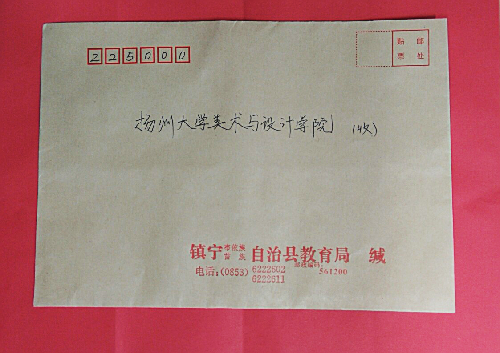 225000
贴 邮
票 处
扬州大学美术与设计学院 (收)
镇宁布依族苗族自治县教育局 缄
电话:(0853) 6222602 邮政编码 561200
6222611